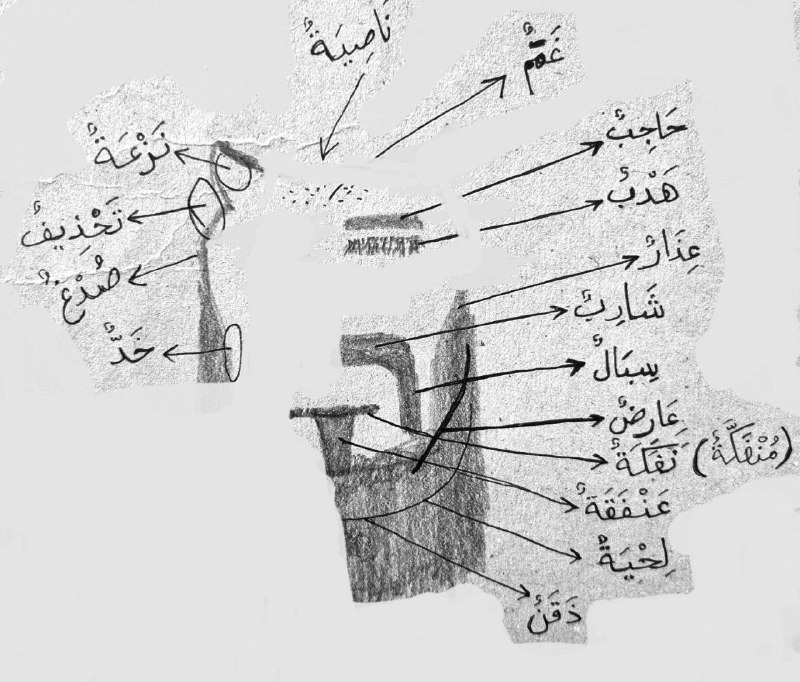 نَاصِيَةٌ
غَمَمٌ
نَزْعَةٌ
تَحْذِيفٌ
صُدْغٌ
خَدٌّ
حَاجِبٌ
هَدْبٌ
عِذَارٌ
شَارِبٌ
سِبَالٌ
عَارِضٌ
نَفَكَةٌ (مُنْفَكَّةٌ)
عَنْفَقَةٌ
لِحْيَةٌ
ذَقَنٌ